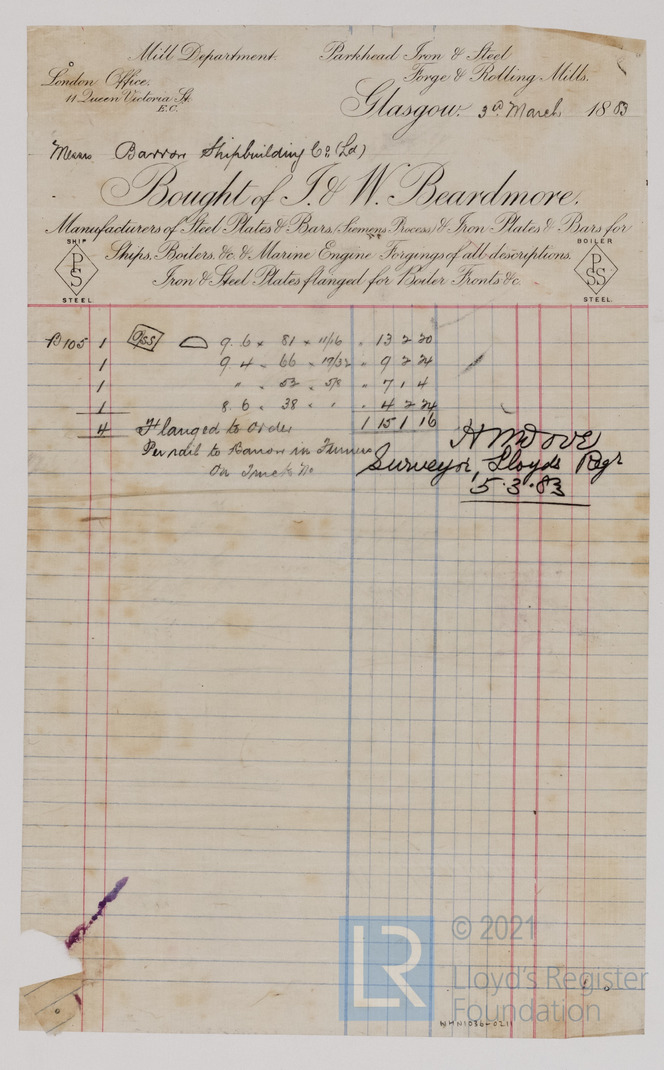 Mill Department. Parkhead Iron & Steel
London Office. Forge & Rolling Mills.
11 Queen Victoria St.
E.C.
Glasgow. 3rd March 1883
Messrs Barrow Shipbuilding Co (Ld)
Bought of I. & W. Beardmore.
Manufacturers of Steel Plates & Bars, (Siemens Process) & Iron Plates & Bars for
SHIP PS STEEL
Ships, Boilers, &c. & Marine Engine Forgings of all descriptions.
BOILER PSS STEEL
Iron & Steel Plates flanged for Boiler Fronts &c.
B105 1 PSS 9.6 x 81 x 11/16 " 13 2 20
1 9 4 " 66 " 19/32 " 9 2 24
1 " " 52 " 5/8 " 7 1 4
1 8.6 " 38 " " " 4 2 24
4 Flanged to Order 1 15 1 16
Per rail to Barrow in Furness
On Truck No
H M Dove
Surveyor, Lloyds Regr
5.3.83
© 2021
LR Lloyd's Register
Foundation
WHN1086-0211